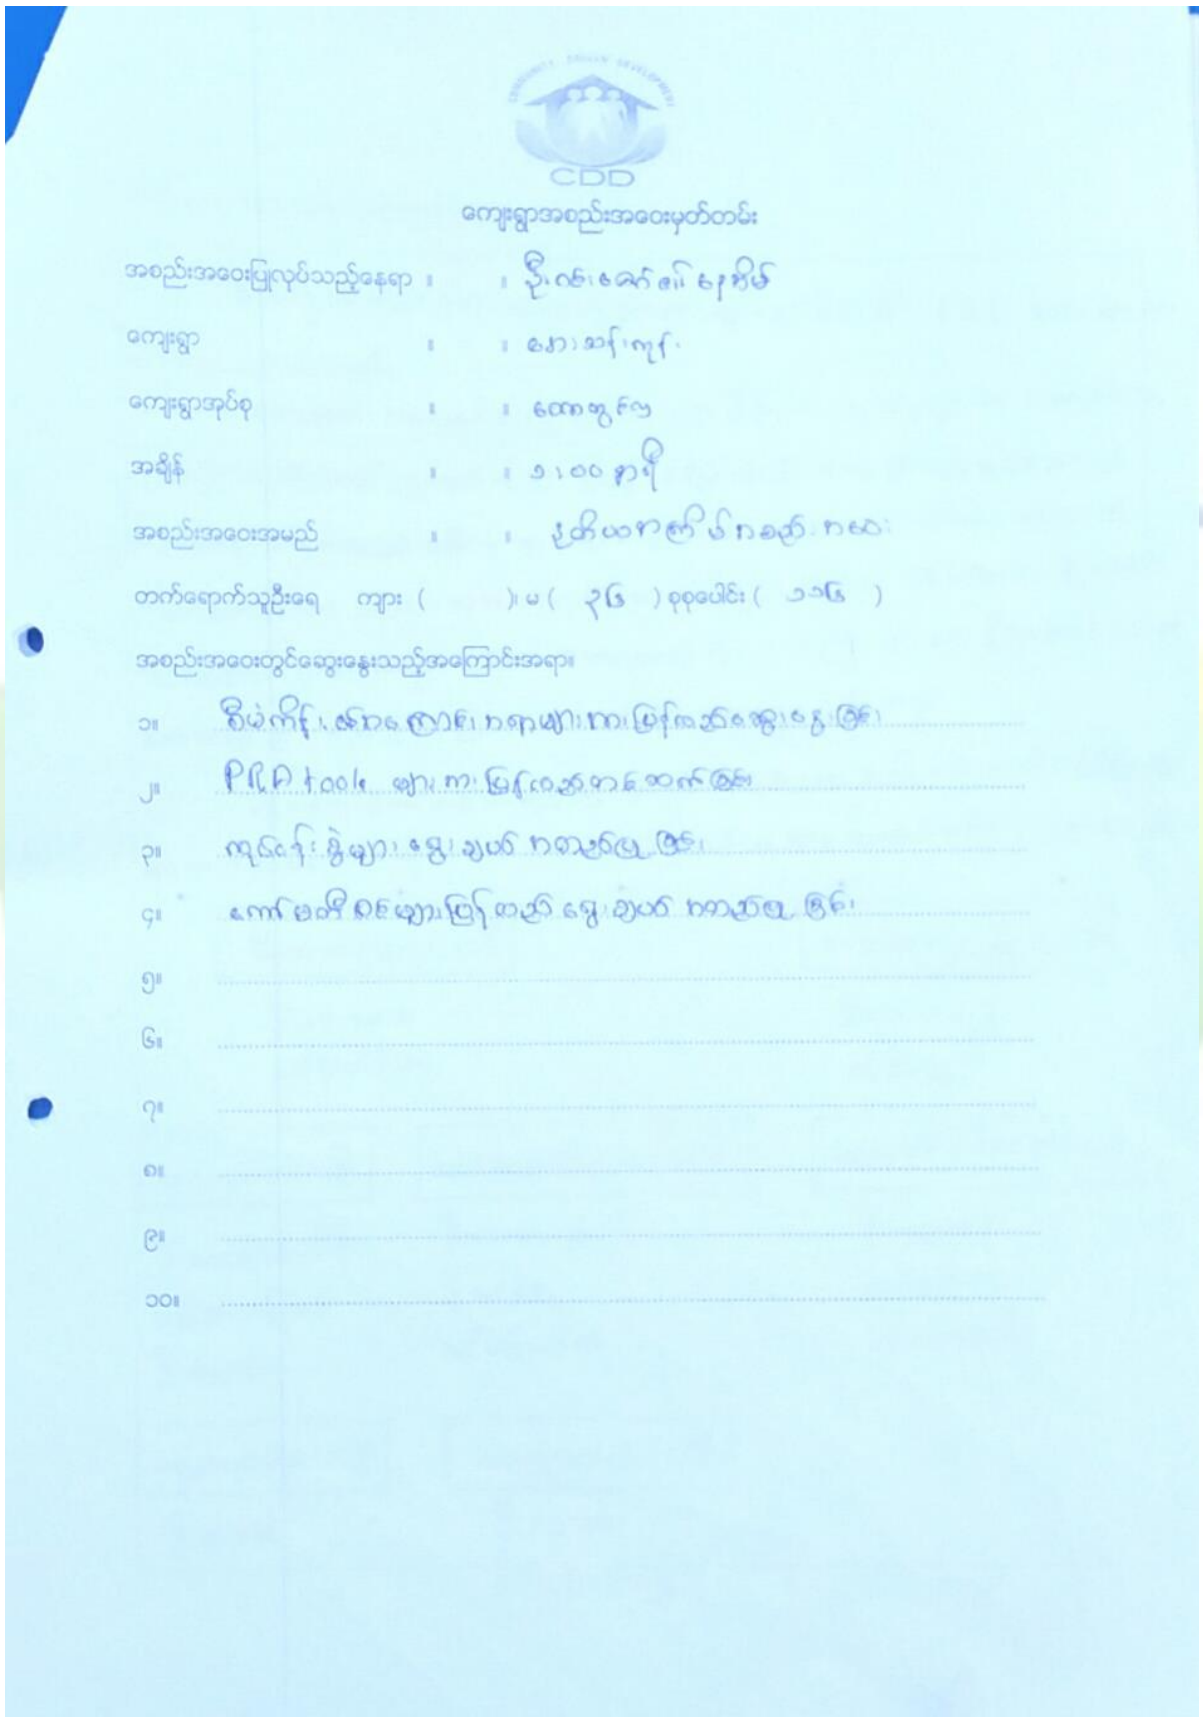 COMMUNITY DRIVEN DEVELOPMENT
CDD
ကျေးရွာအစည်းအဝေးမှတ်တမ်း
အစည်းအဝေးပြုလုပ်သည့်နေရာ ။ ။ ဦး နေအိမ်
ကျေးရွာ ။ ။ သန်းကုန်း
ကျေးရွာအုပ်စု ။ ။
အချိန် ။ ။ ၁:၀၀ နာရီ
အစည်းအဝေးအမည် ။ ။ ဒုတိယအကြိမ်အစည်းအဝေး
တက်ရောက်သူဦးရေ ကျား ( )၊ မ ( ၃၆ ) စုစုပေါင်း ( ၁၁၆ )
အစည်းအဝေးတွင်ဆွေးနွေးသည့်အကြောင်းအရာ။
၁။ စီမံကိန်း အကြောင်းအရာများအားပြန်လည်ဆွေးနွေးခြင်း
၂။ PRA tools များအားပြန်လည်တင်ဆက်ခြင်း
၃။ လုပ်ငန်းခွဲများရွေးချယ်အတည်ပြုခြင်း
၄။ ကော်မတီဝင်များပြန်လည်ရွေးချယ်အတည်ပြုခြင်း
၅။
၆။
၇။
၈။
၉။
၁၀။